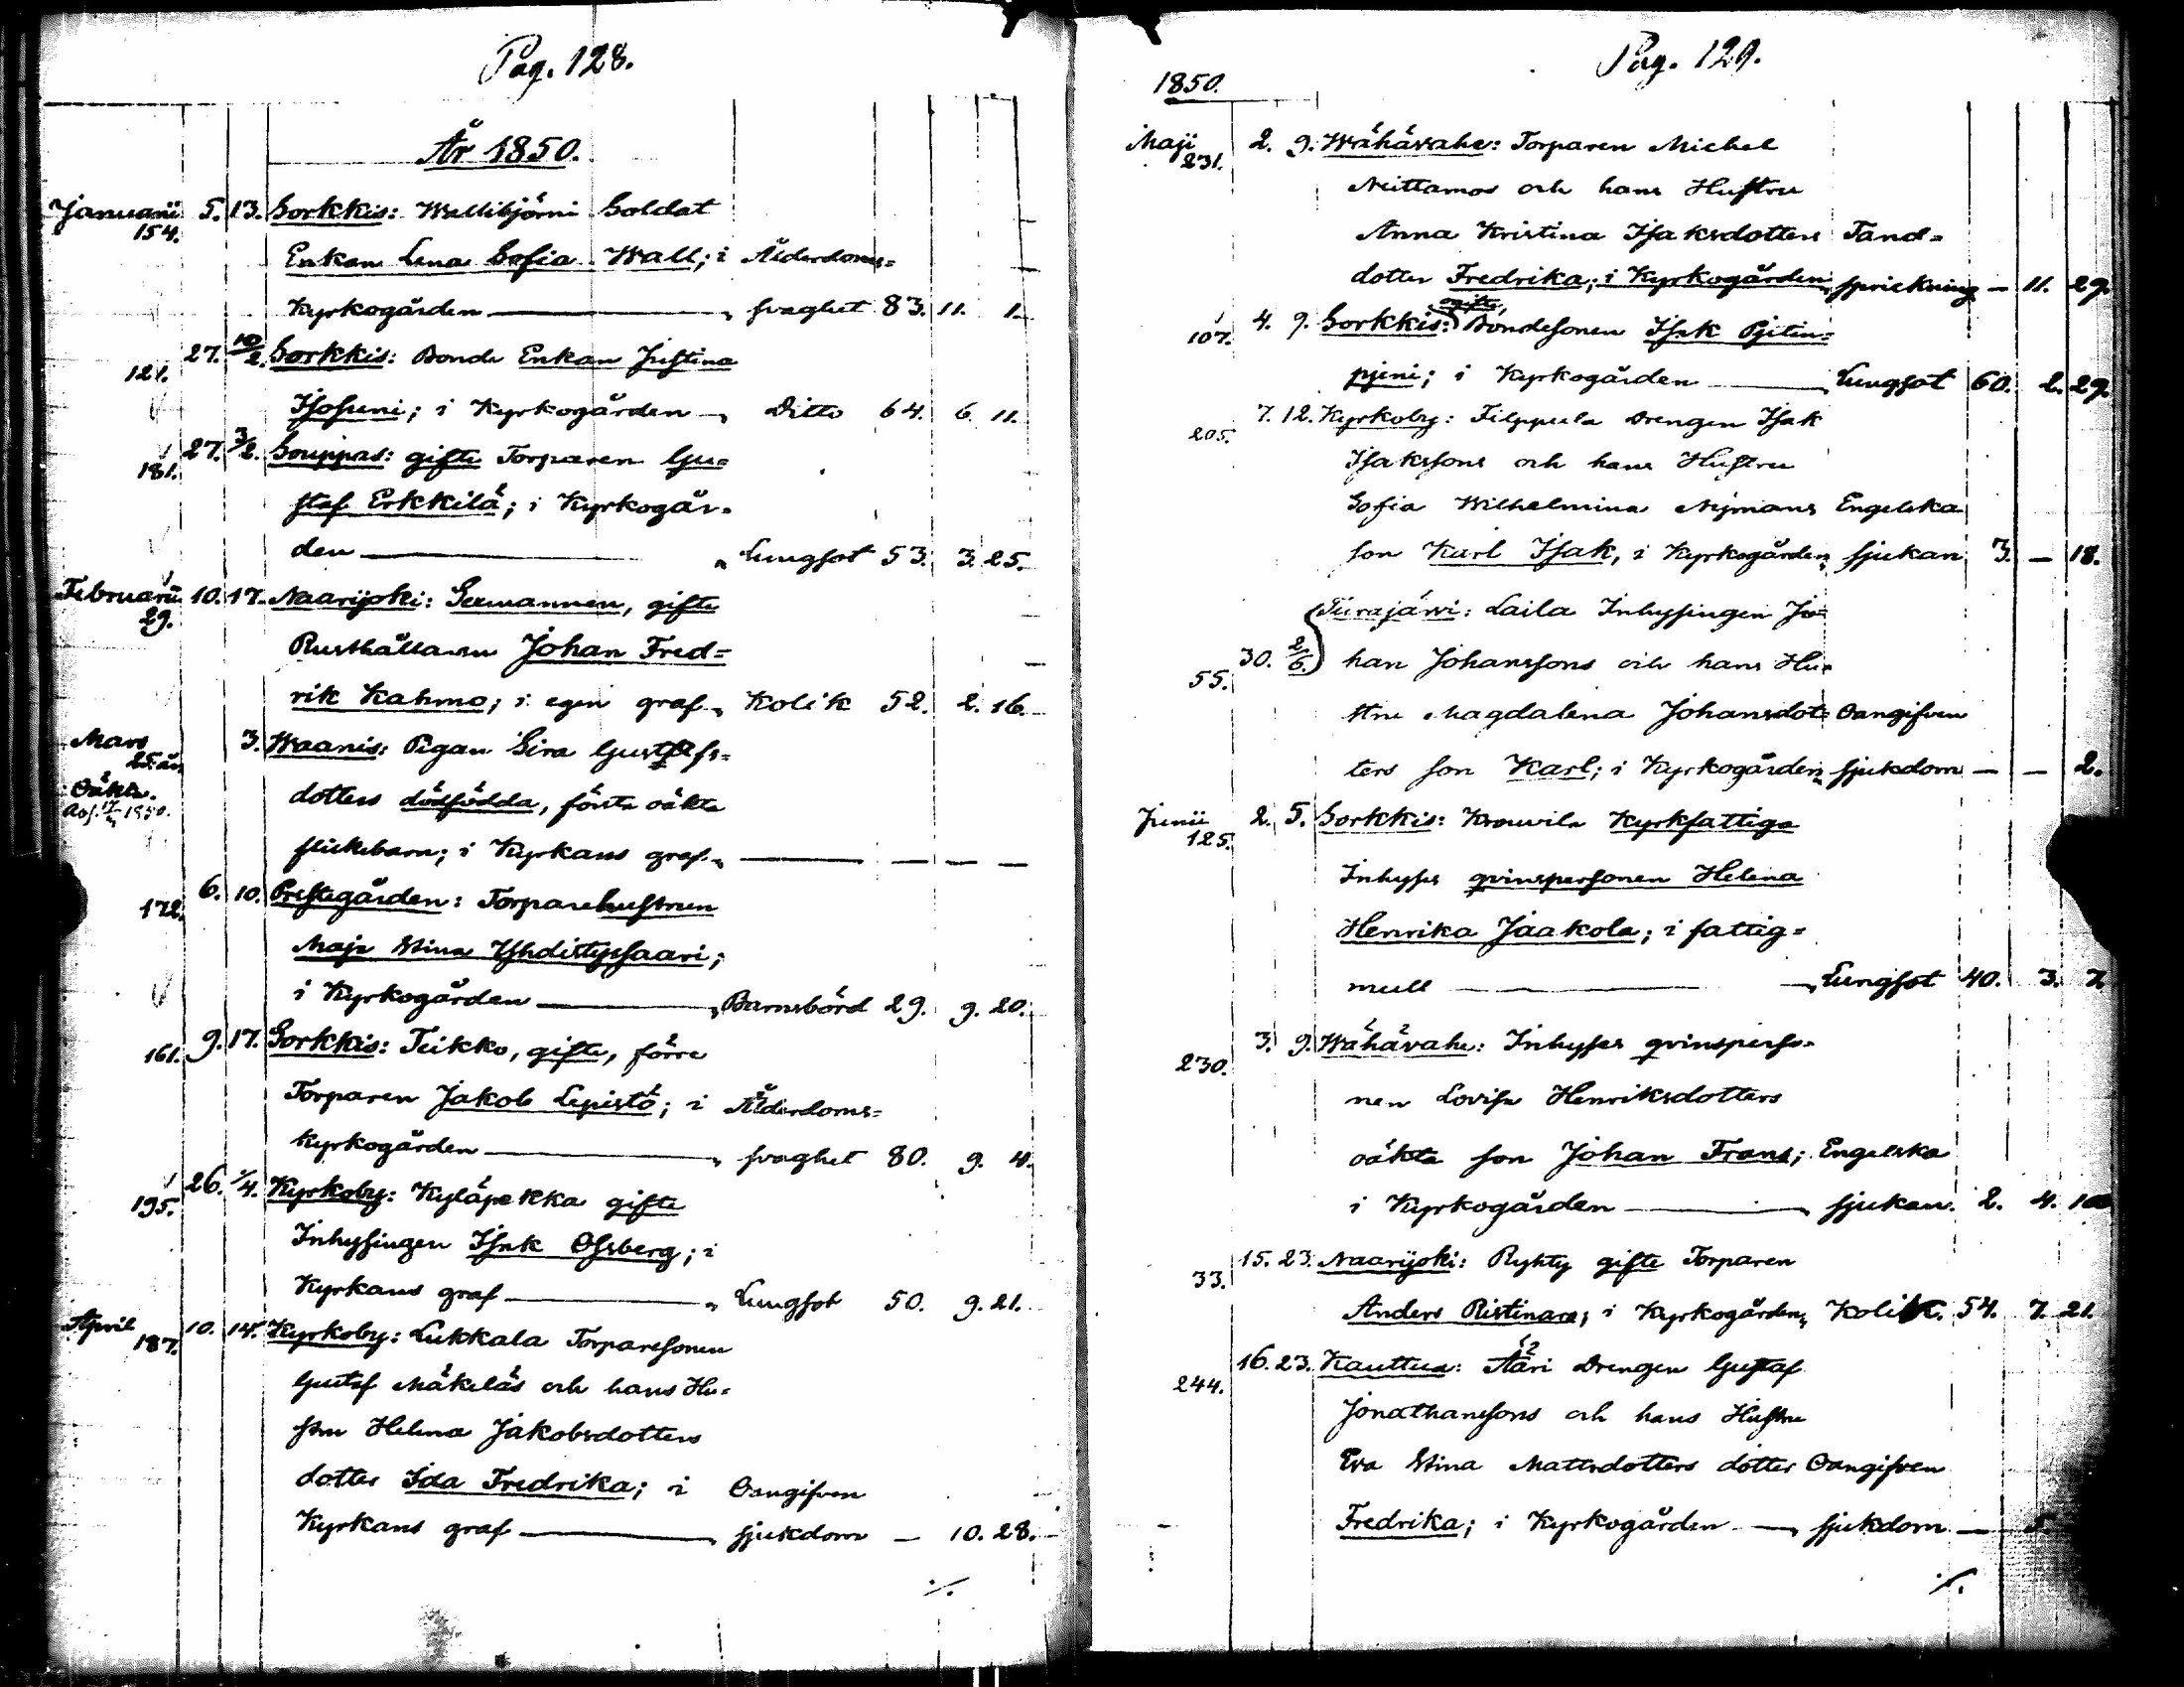 Pag. 128.
År 1850.
Januarii 5. 13. Sorkkis: Wallibjörni Soldat
154.
Enkan Lena Sofia Wall; i Ålderdoms=
Kyrkogården — " svaghet 83. 11. 1.
27. 10/2. Sorkkis: Bonde Enkan Justina
121.
Isosuni; i Kyrkogården " Ditto 64. 6. 11.
27. 3/2. Souppas: gifte Torparen Gu=
181.
staf Erkkilä; i Kyrkogår=
den — " Lungsot 53. 3. 25.
Februarii 10. 17. Naarijoki: Seemannen, gifte
29.
Rusthållaren Johan Fred=
rik Kahmo; i egen graf " Kolik 52. 2. 16.
Mars 3. Waanis: Pigan Sira Gustafs=
25 år
dotters dödfödda, första oäkta
Oäkta.
Aof. 17/3 1850.
flickebarn; i Kyrkans graf " — — — —
6. 10. Prestegården: Torparehustrun
172.
Maja Stina Yhdistyssaari;
i Kyrkogården — " Barnsbörd 29. 9. 20.
9. 17. Sorkkis: Teikko, gifte, förre
161.
Torparen Jakob Lepistö; i Ålderdoms=
kyrkogården — " svaghet 80. 9. 4.
26. 1/4. Kyrkoby: Kyläpekka gifte
195.
Inhysingen Isak Ofsberg; i
Kyrkans graf — " Lungsot 50. 9. 21.
April 10. 14. Kyrkoby: Lukkala Torparesonen
187.
Gustaf Mäkeläs och hans Hu=
stru Helena Jakobsdotters
dotter Ida Fredrika; i Oangifven
Kyrkans graf — " sjukdom — 10. 28.
./.
Pag. 129.
1850.
Maji 2. 9. Wähävahe: Torparen Michel
231.
Niittamos och hans Hustru
Anna Kristina Isaksdotters Tand=
dotter Fredrika; i Kyrkogården " sprickning — 11. 29.
ogifte,
4. 9. Sorkkis: Bondesonen Isak Pjitin=
107.
pjeni; i Kyrkogården — " Lungsot 60. 2. 29.
7. 12. Kyrkoby: Filppula Drengen Isak
205.
Isakssons och hans Hustru
Sofia Wilhelmina Nymans Engelska
son Karl Isak, i Kyrkogården " sjukan 3. — 18.
Tiirajärvi: Laila Inhysingen Jo=
30. 2/6. han Johanssons och hans Hu=
55.
stru Magdalena Johansdot= Oangifven
ters son Karl; i Kyrkogården " sjukdom — — 2.
Junii 2. 5. Sorkkis: Krouvila Kyrkfattiga
125.
Inhyses qvinspersonen Helena
Henrika Jaakola; i fattig=
mull — " Lungsot 40. 3. 7.
3. 9. Wähävahe: Inhyses qvinsperso=
230.
nen Lovisa Henriksdotters
oäkta son Johan Frans; Engelska
i Kyrkogården — " sjukan. 2. 4.
15. 23. Naarijoki: Ryhty gifte Torparen
33.
Anders Ristinara; i Kyrkogården " Kolik. 54. 7. 21.
16. 23. Kauttua: Ääri Drengen Gustaf
244.
Jonathanssons och hans Hustru
Eva Stina Mattsdotters dotter Oangifven
Fredrika; i Kyrkogården — " sjukdom —
./.